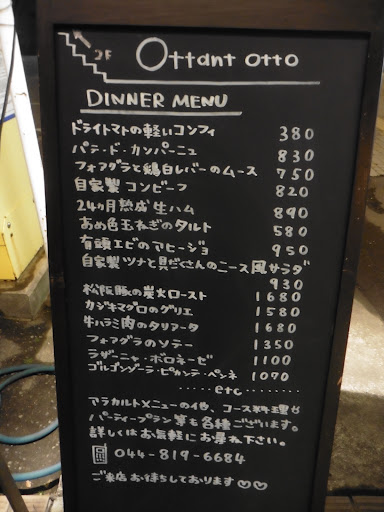 2F Ottant Otto
DINNER MENU
ドライトマトの軽いコンフィ 380
パテ・ド・カンパーニュ 830
フォアグラと鶏白レバーのムース 750
自家製コンビーフ 820
24ヵ月熟成生ハム 890
あめ色玉ねぎのタルト 580
有頭エビのアヒージョ 950
自家製ツナと具だくさんのニース風サラダ
930
松阪豚の炭火ロースト 1680
カジキマグロのグリエ 1580
牛ハラミ肉のタリアータ 1680
フォアグラのソテー 1350
ラザーニャ・ボロネーゼ 1100
ゴルゴンゾーラ・ピカンテ・ペンネ 1070
・・・・・etc・・・・・・・
アラカルトメニューの他、コース料理や
パーティープラン等も各種ございます。
詳しくはお気軽にお尋ね下さい。
044-819-6684
ご来店お待ちしております♡♡